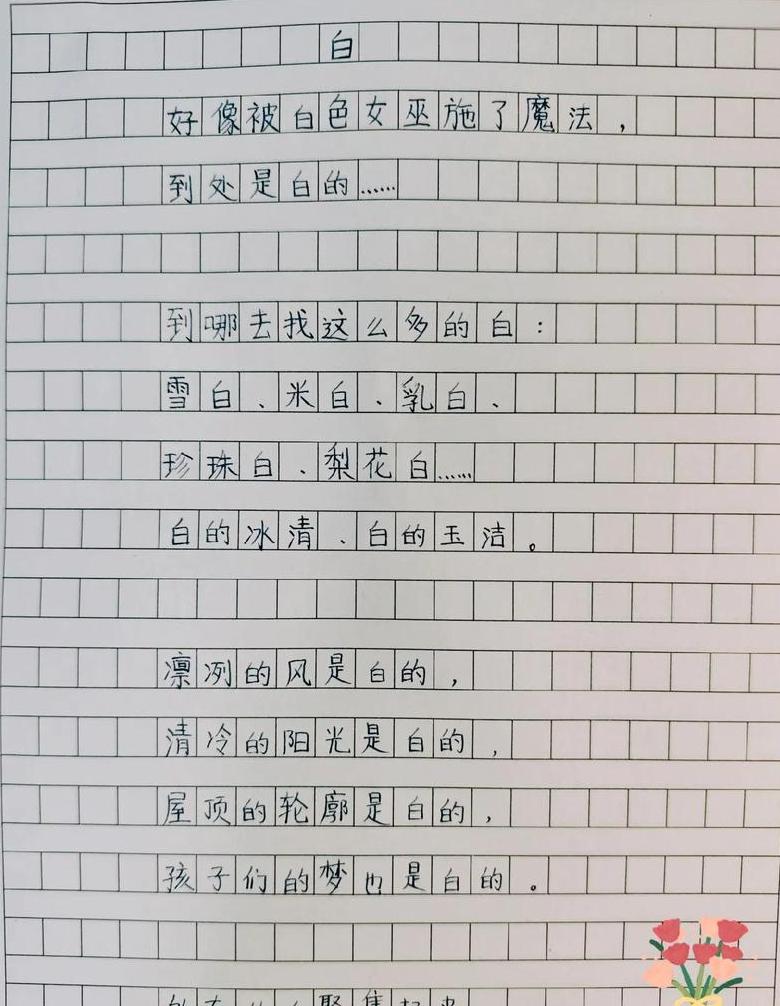 白
好像被白色女巫施了魔法，
到处是白的……
到哪去找这么多的白：
雪白、米白、乳白、
珍珠白、梨花白……
白的冰清、白的玉洁。
凛冽的风是白的，
清冷的阳光是白的，
屋顶的轮廓是白的，
孩子们的梦也是白的。